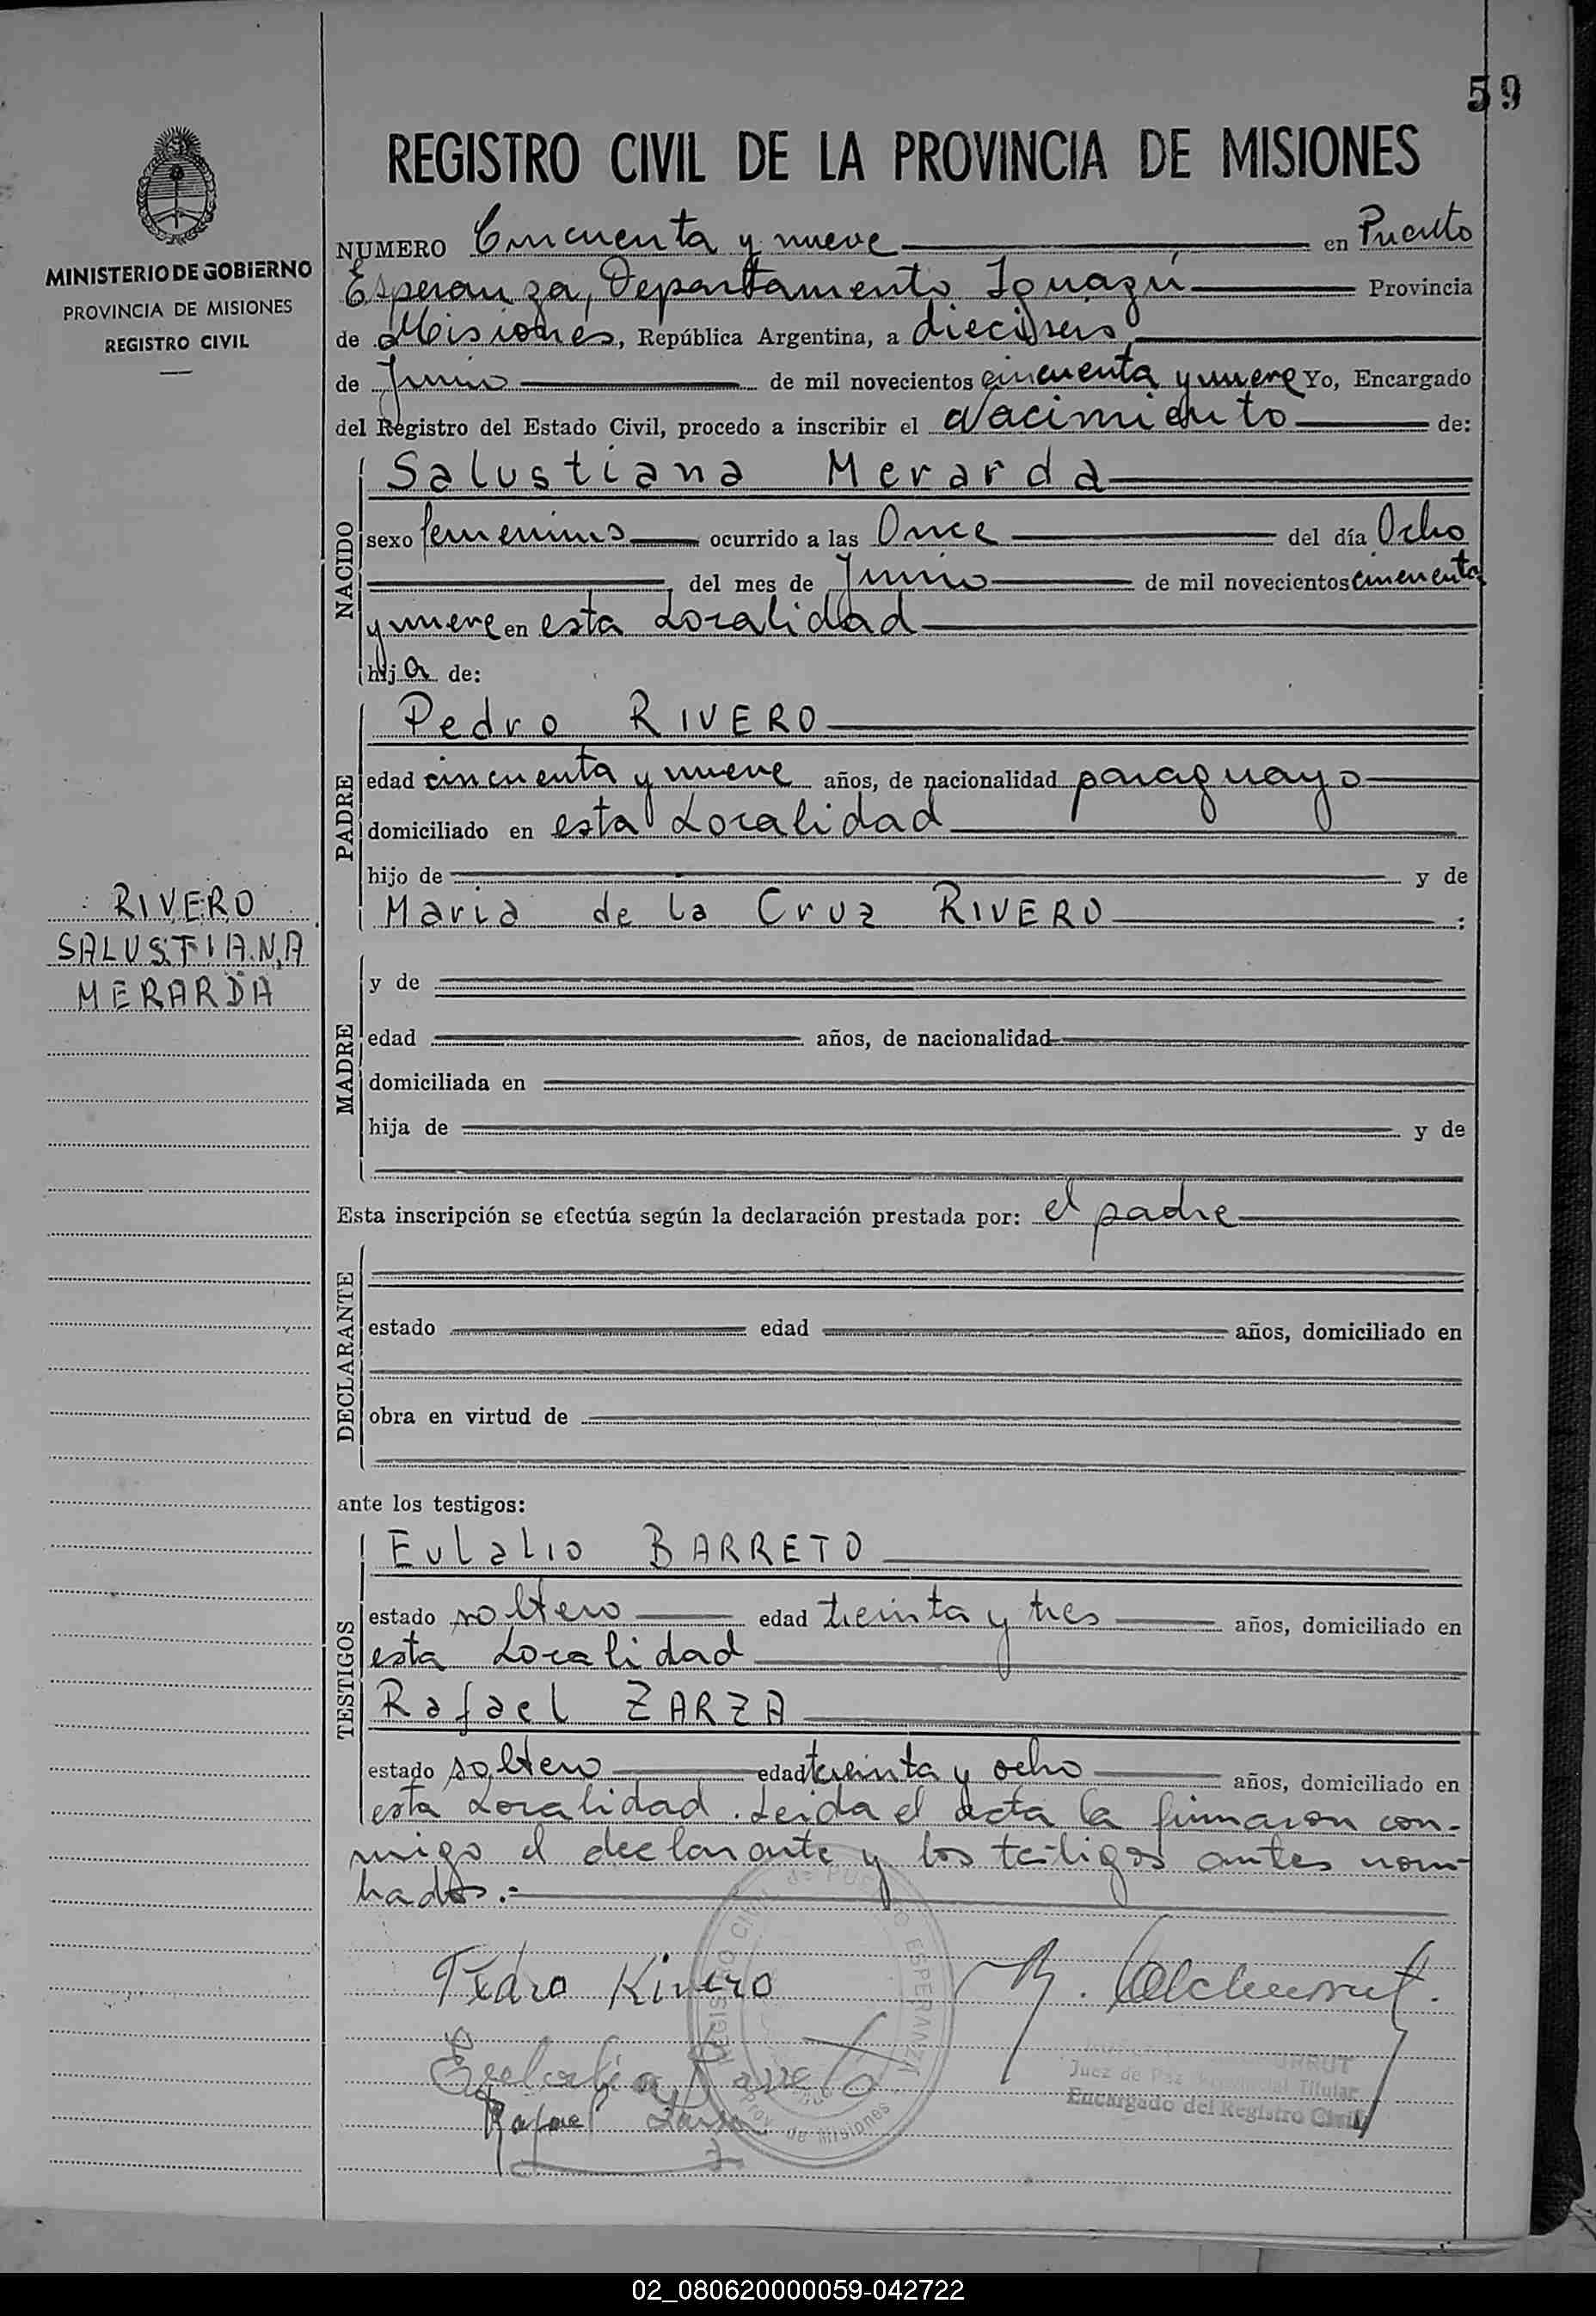 59
REGISTRO CIVIL DE LA PROVINCIA DE MISIONES
MINISTERIO DE GOBIERNO
PROVINCIA DE MISIONES
REGISTRO CIVIL
NUMERO Cincuenta y nueve en Puerto
Esperanza, Departamento Iguazú Provincia
de Misiones, República Argentina, a dieciseis
de Junio de mil novecientos cincuenta y nueve Yo, Encargado
del Registro del Estado Civil, procedo a inscribir el Nacimiento de:
NACIDO
Salustiana Merarda
sexo femenino ocurrido a las Once del día Ocho
del mes de Junio de mil novecientos cincuenta
y nueve en esta Localidad
hija de:
PADRE
Pedro RIVERO
edad cincuenta y nueve años, de nacionalidad paraguayo
domiciliado en esta Localidad
hijo de y de
Maria de la Cruz RIVERO :
RIVERO
SALUSTIANA
MERARDA
MADRE
y de
edad años, de nacionalidad
domiciliada en
hija de y de
Esta inscripción se efectúa según la declaración prestada por: el padre
DECLARANTE
estado edad años, domiciliado en
obra en virtud de
ante los testigos:
TESTIGOS
Eulalio BARRETO
estado soltero edad treinta y tres años, domiciliado en
esta Localidad
Rafael ZARZA
estado soltero edad treinta y ocho años, domiciliado en
esta Localidad. Leida el acta la firmaron con-
migo el declarante y los testigos antes nom-
brados.-
Pedro Rivero
Eulalio Barreto
Rafael Zarza
REGISTRO CIVIL de PUERTO ESPERANZA
Prov. de Misiones
Juez de Paz Provincial Titular
Encargado del Registro Civil
02_080620000059-042722